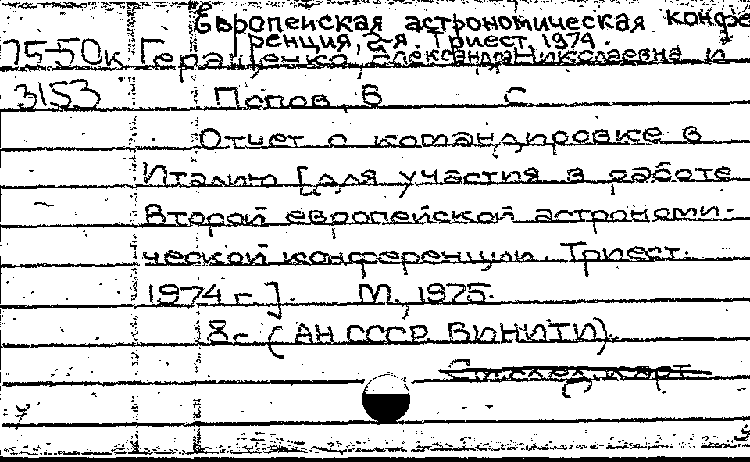 Европейская астрономическая конфе
ренция, 2-я. Триест, 1974.
75-50к Геращенко, Александра Николаевна и
3153 Попов, В С
Отчет о командировке в
Италию [для участия в работе
Второй европейской астрономи-
ческой конференции. Триест.
1974 г.]. М., 1975.
8с (АН СССР. ВИНИТИ).